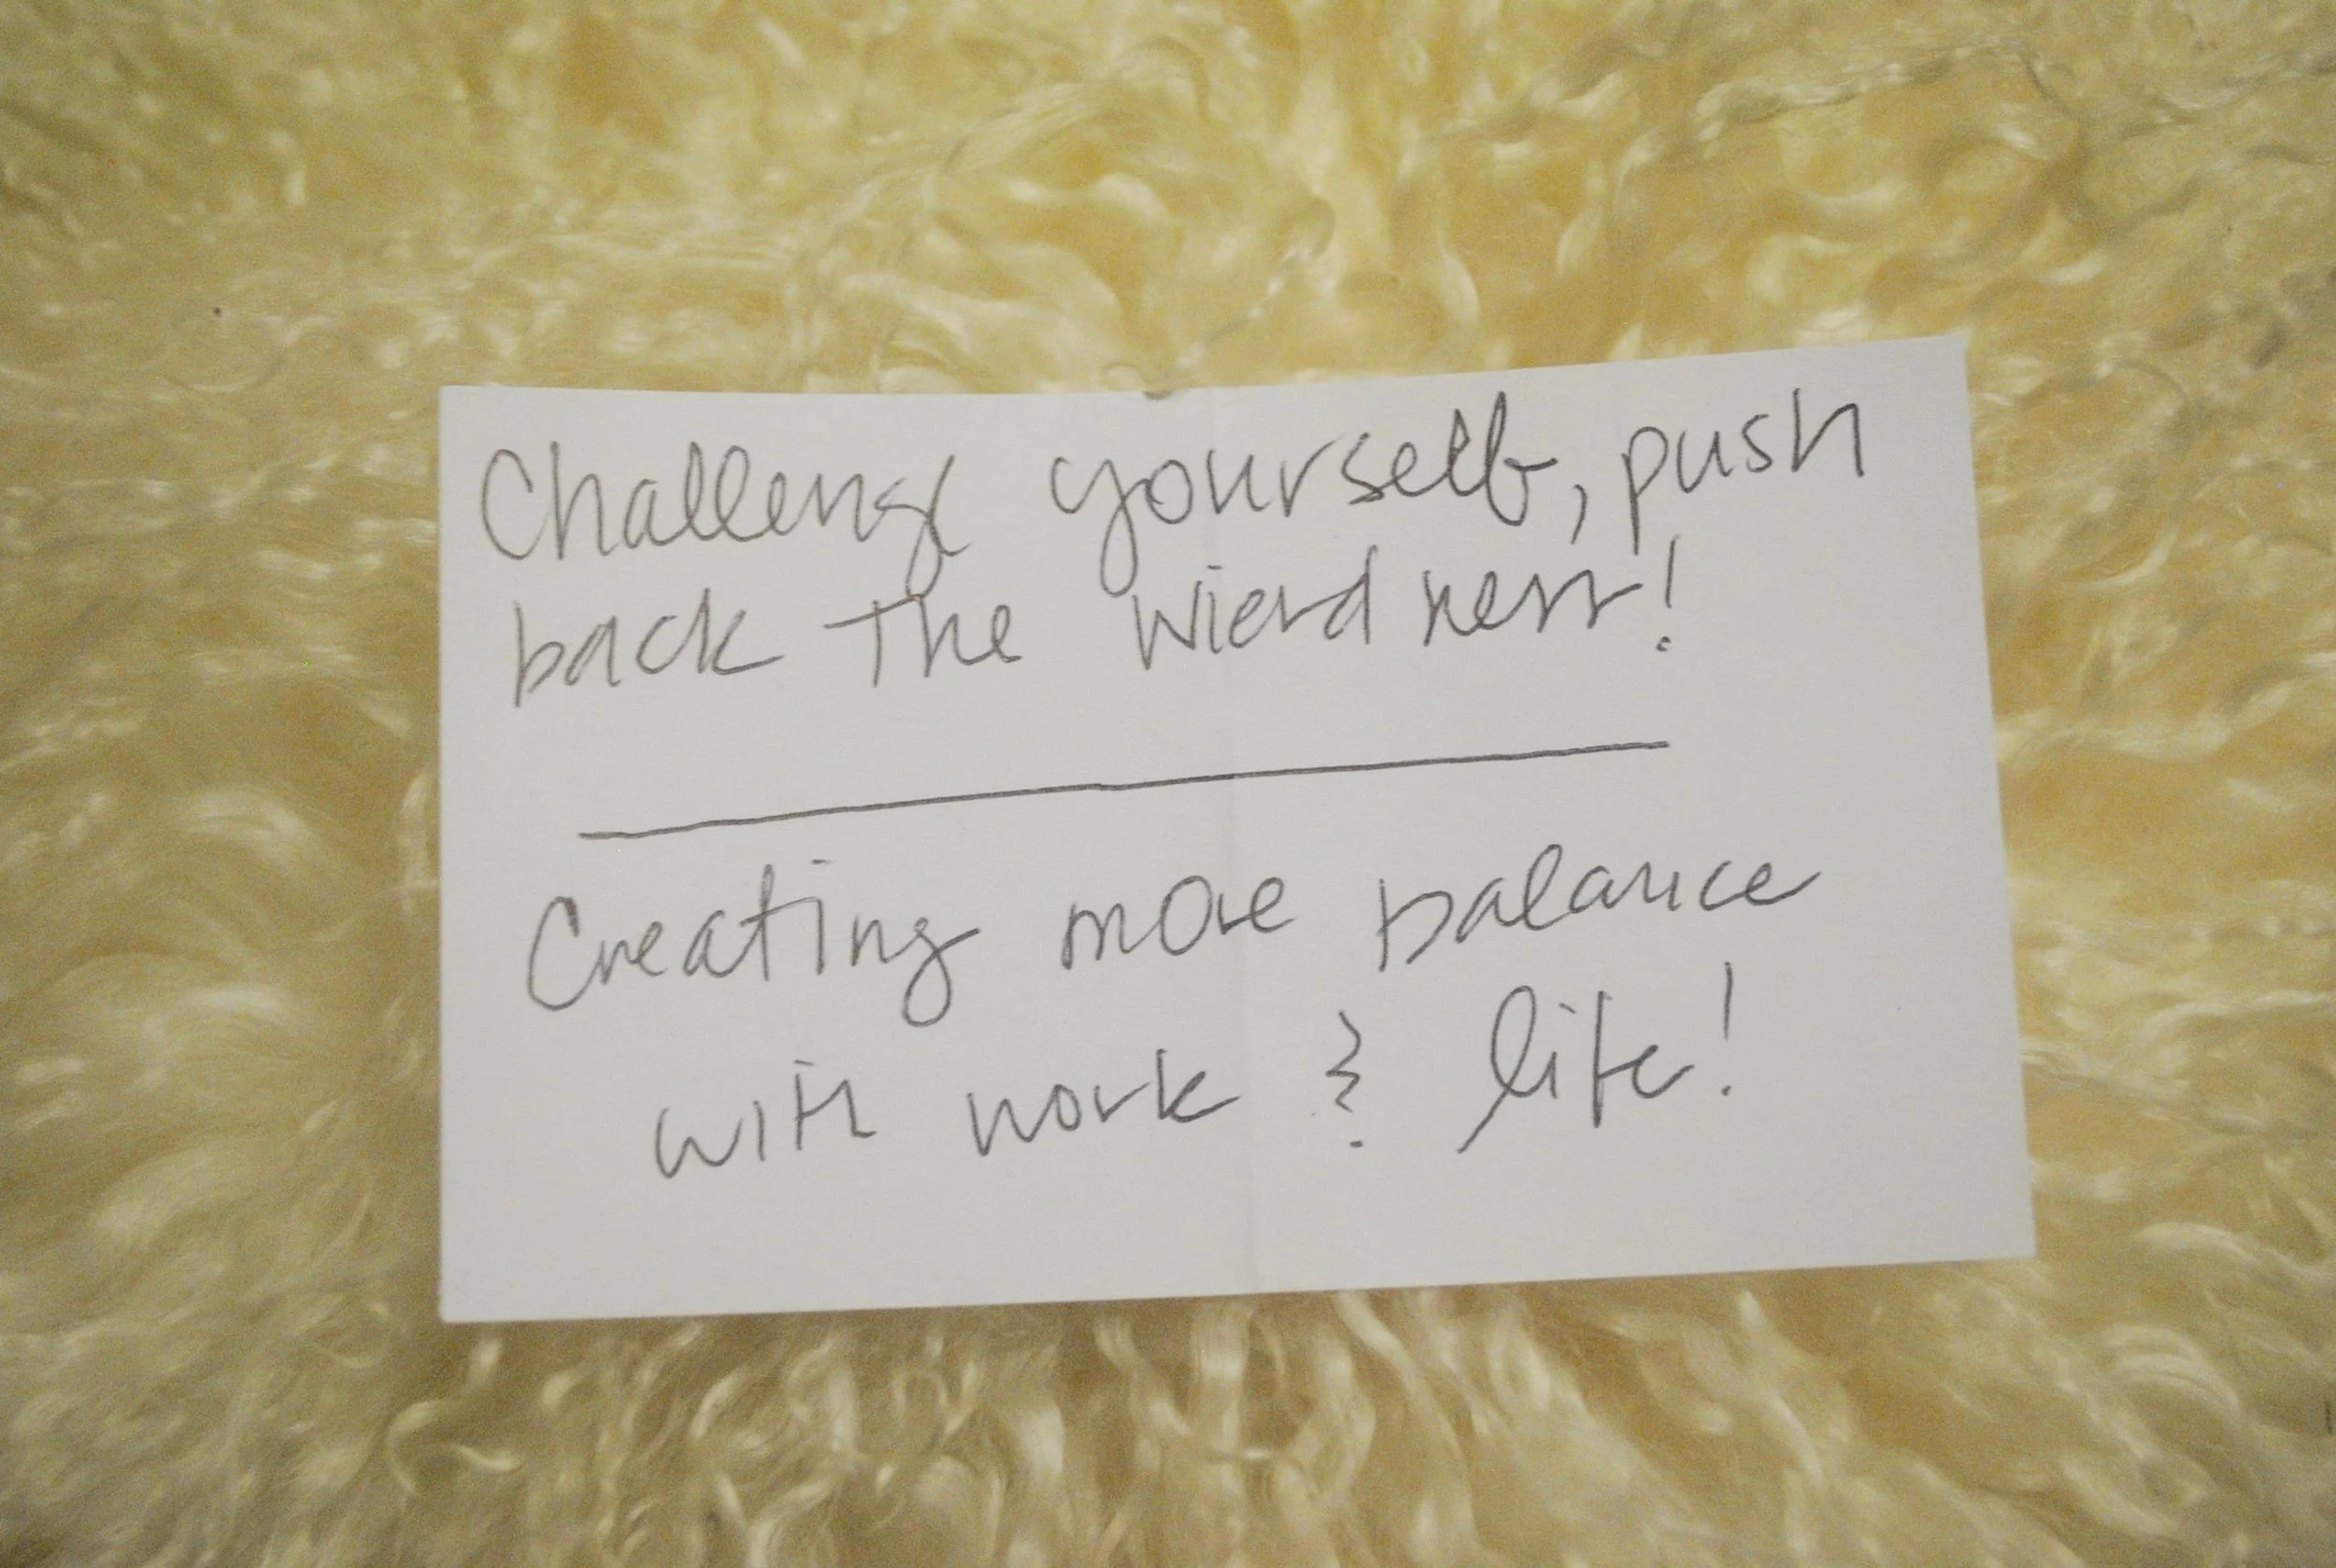 Challenge yourself, push
back the wierdness!
Creating more balance
with work & life!